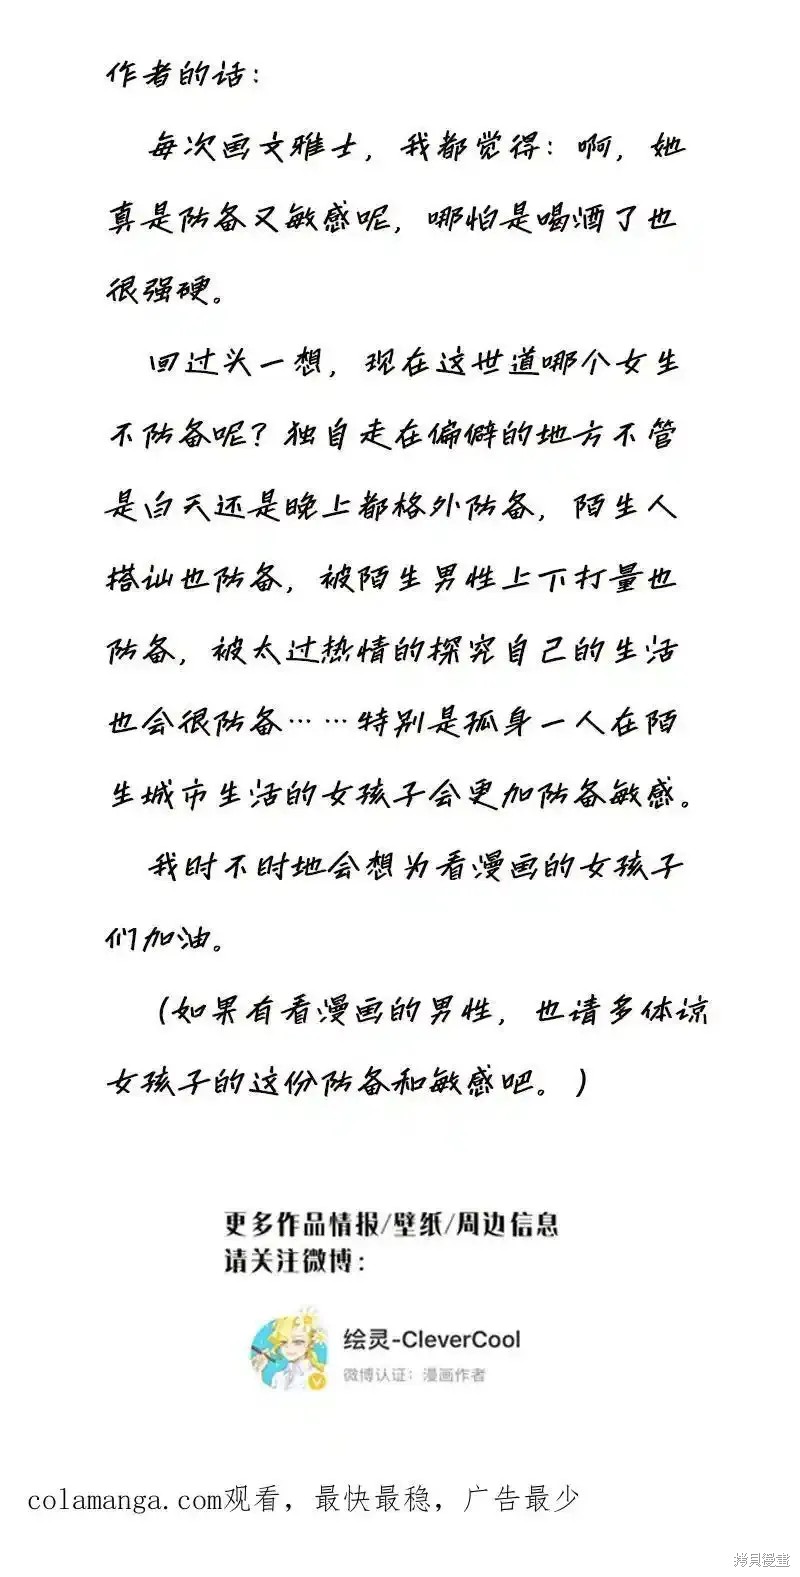 作者的话：
每次画文雅士，我都觉得：啊，她
真是防备又敏感呢，哪怕是喝酒了也
很强硬。
回过头一想，现在这世道哪个女生
不防备呢？独自走在偏僻的地方不管
是白天还是晚上都格外防备，陌生人
搭讪也防备，被陌生男性上下打量也
防备，被太过热情的探究自己的生活
也会很防备……特别是孤身一人在陌
生城市生活的女孩子会更加防备敏感。
我时不时地会想为看漫画的女孩子
们加油。
（如果有看漫画的男性，也请多体谅
女孩子的这份防备和敏感吧。）
更多作品情报/壁纸/周边信息
请关注微博：
绘灵-CleverCool
微博认证：漫画作者
colamanga.com观看，最快最稳，广告最少
拷贝漫畫